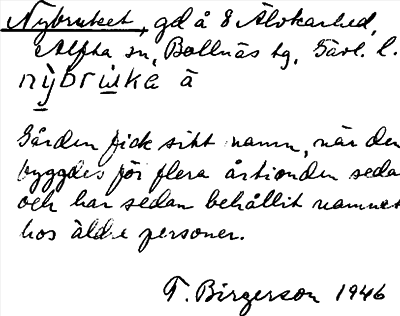 Nybruket, gd å 8 Älvkarhed,
Alfta sn, Bollnäs tg, Gävl. l.
nỳbruska ä
Gården fick sitt namn, när den
byggdes för flera årtionden sedan
och har sedan behållit namnet
hos äldre personer.
T. Birgerson 1946